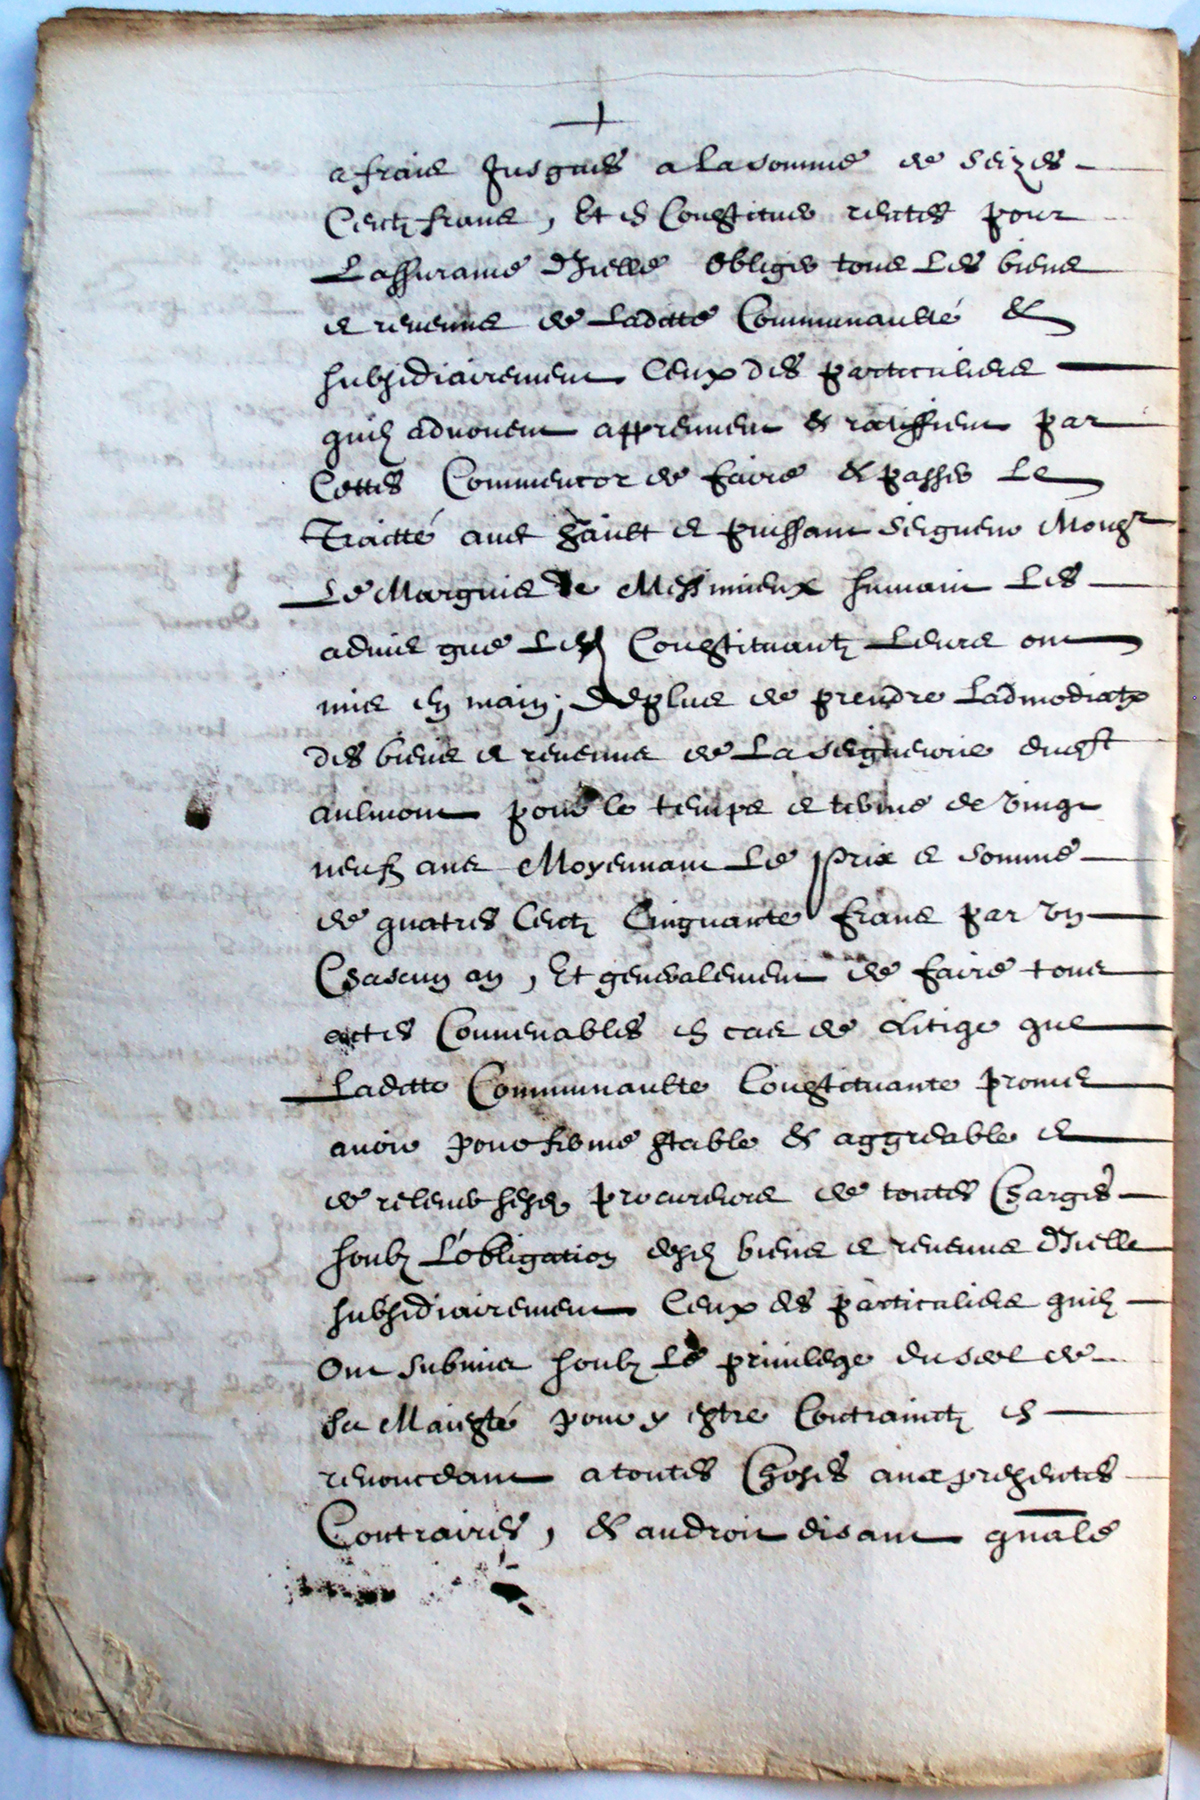 a frais Jusques a la somme de seizes
Centz frans, Et en Constituer rentes pour
Lassurance d'Icelle Obliger tous Les biens
et revenus de Laditte Communaulté &
subsidiairement Ceux des particuliers
quilz advouent apprennent & ratiffient par
Cettes Comme encor de faire & passer Le
Traitté avec hault et puissant seigneur Monsr
Le Marquis de Messimieux suivant Les
advis que Lesd Constituantz Leurs ont
mis en main; & de plus de prendre Ladmodiatn
des biens et revenus de La seigneurie dudt
aulmont pour le temps et terme de vingt
neufz ans Moyennant Le Prix et somme
de quatres Centz Cinquante frans par un
Chascun an, Et generalement de faire tous
actes Convenables en cas de Litige que
Laditte Communaulte Constituante promet
avoir pour ferme stable & aggreable et
de relever sesd procureurs de toutes Charges
soubz L'obligation desd biens et revenus d'Icelle
subsidiairement Ceux des particuliers quilz
Ont submis soubz Le privilege du seel de
sa Maiesté pour y estre Contrainctz en
renonceant a toutes Choses aux presentes
Contraires, & au droit disant que la gnâle